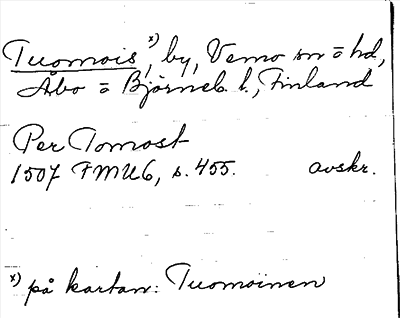 Tuomois x), by, Vemo sn o hd,
Åbo o Björneb. l., Finland
Per Tomost
1507 FMU6, s. 455. avskr.
x) på kartan: Tuomoinen